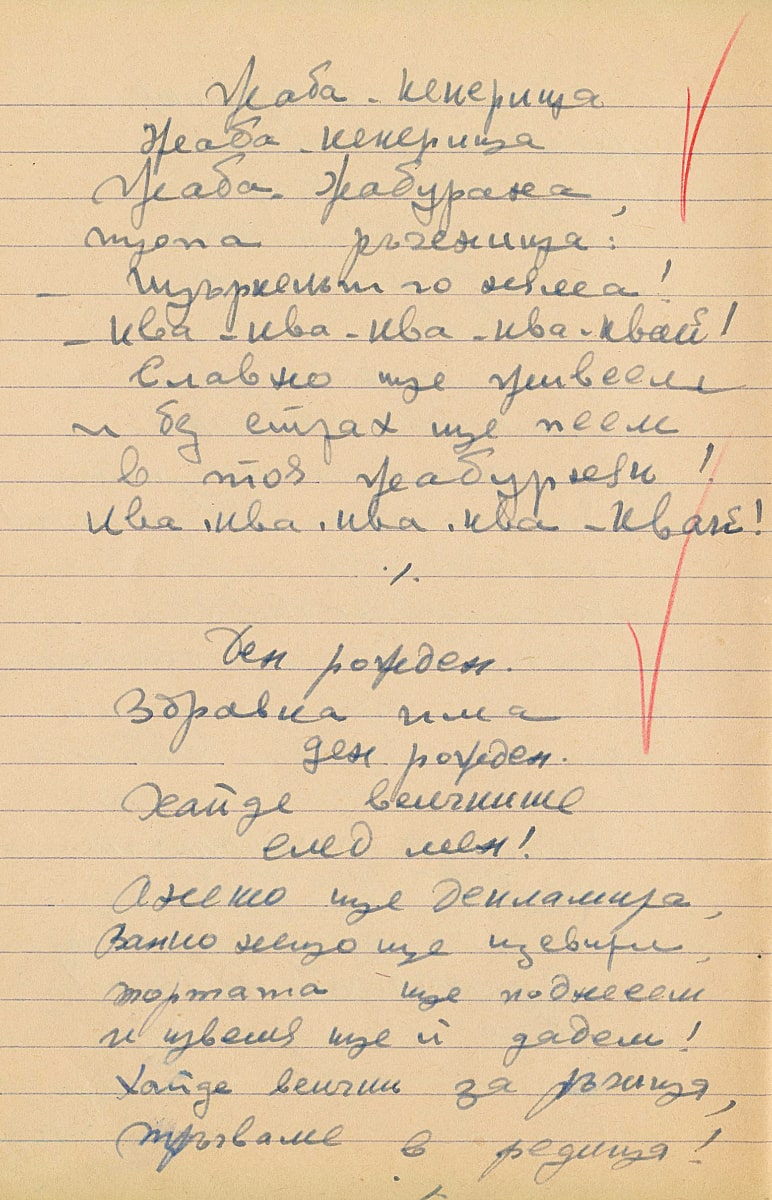 Жаба - кекерица
Жаба - кекерица
Жаба - жабурана,
щопа ръченица:
- Щъркелът го няма!
- Ква - ква - ква - ква - квай!
Славно ще живеем
и без страх ще пеем
в тоя жабурняк!
Ква - ква - ква - ква - квай!
·/.
Ден рожден.
Здравка има
ден рожден.
Хайде всичките
след мен!
Ането ще декламира,
Ванко нещо ще изсвири,
тортата ще поднесем
и цветя ще й дадем!
Хайде всички за ръчица,
тръгваме в редица!